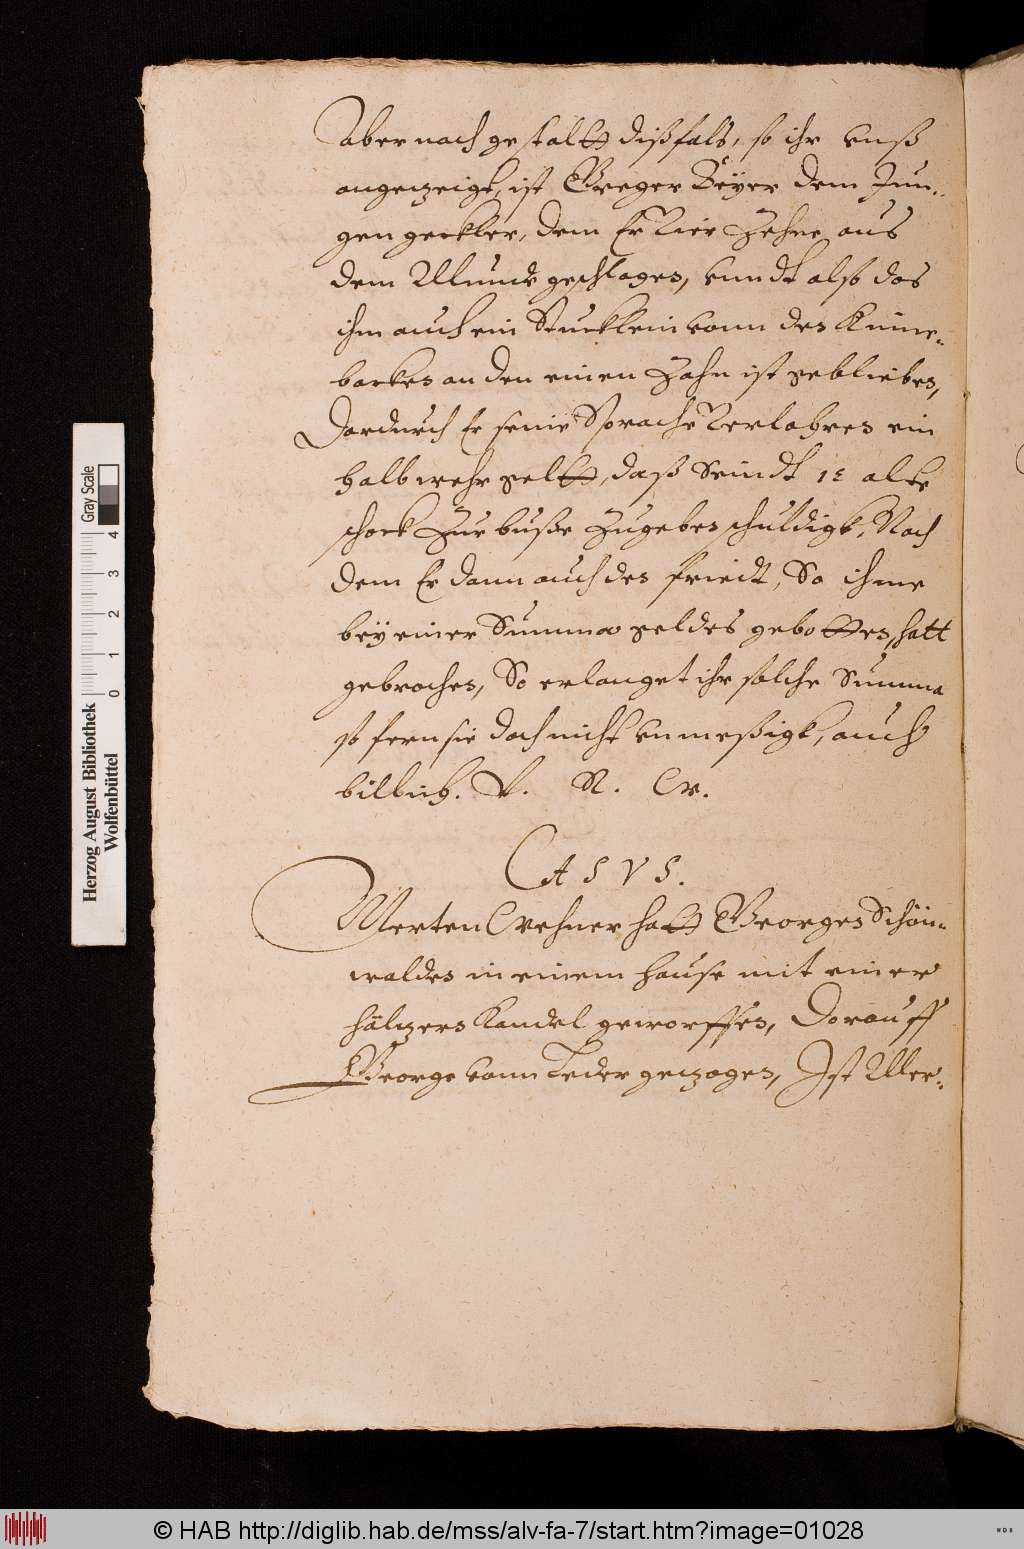 Aber nach gestaltt dißfals, so ihr vnß
angetzeigt, ist Greger Beyer dem Jun-
gen geckler, dem Er Vier Zehne aus
dem Munde geschlagen, vnndt also das
ihm auch ein Stucklein vonn den Kinne-
backen an den einen Zahn ist geblieben,
Dardurch Er seine Sprache Verlohren ein
halb wehr geltt, daß Seindt 15 alte
schock Zur busse Zugeben schuldigk, Nach
dem Er dann auch den friedt, So ihme
bey einer Summa geldes gebotten, hatt
gebrochen, So erlanget ihr solche Summa
so fern sie doch nicht vnmeßigk, auch
billich. V. R. W.
CASVS.
Merten Wehner hatt Georgen Schön-
walden in einem hause mit einer
höltzern Kandel geworffen, Dorauff
George vonn Leder getzogen, Ist Mer-
Herzog August Bibliothek
Wolfenbüttel
Gray Scale
0 1 2 3 4
© HAB http://diglib.hab.de/mss/alv-fa-7/start.htm?image=01028